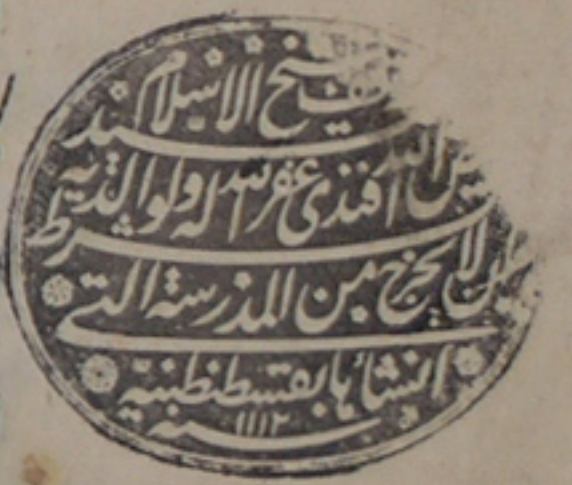 شيخ الاسلام السيد
فيض الله افندى غفر الله له ولوالديه
بشرط ان لا يخرج من المدرسة التى
انشأها بقسطنطينية
سنة ١١١٢